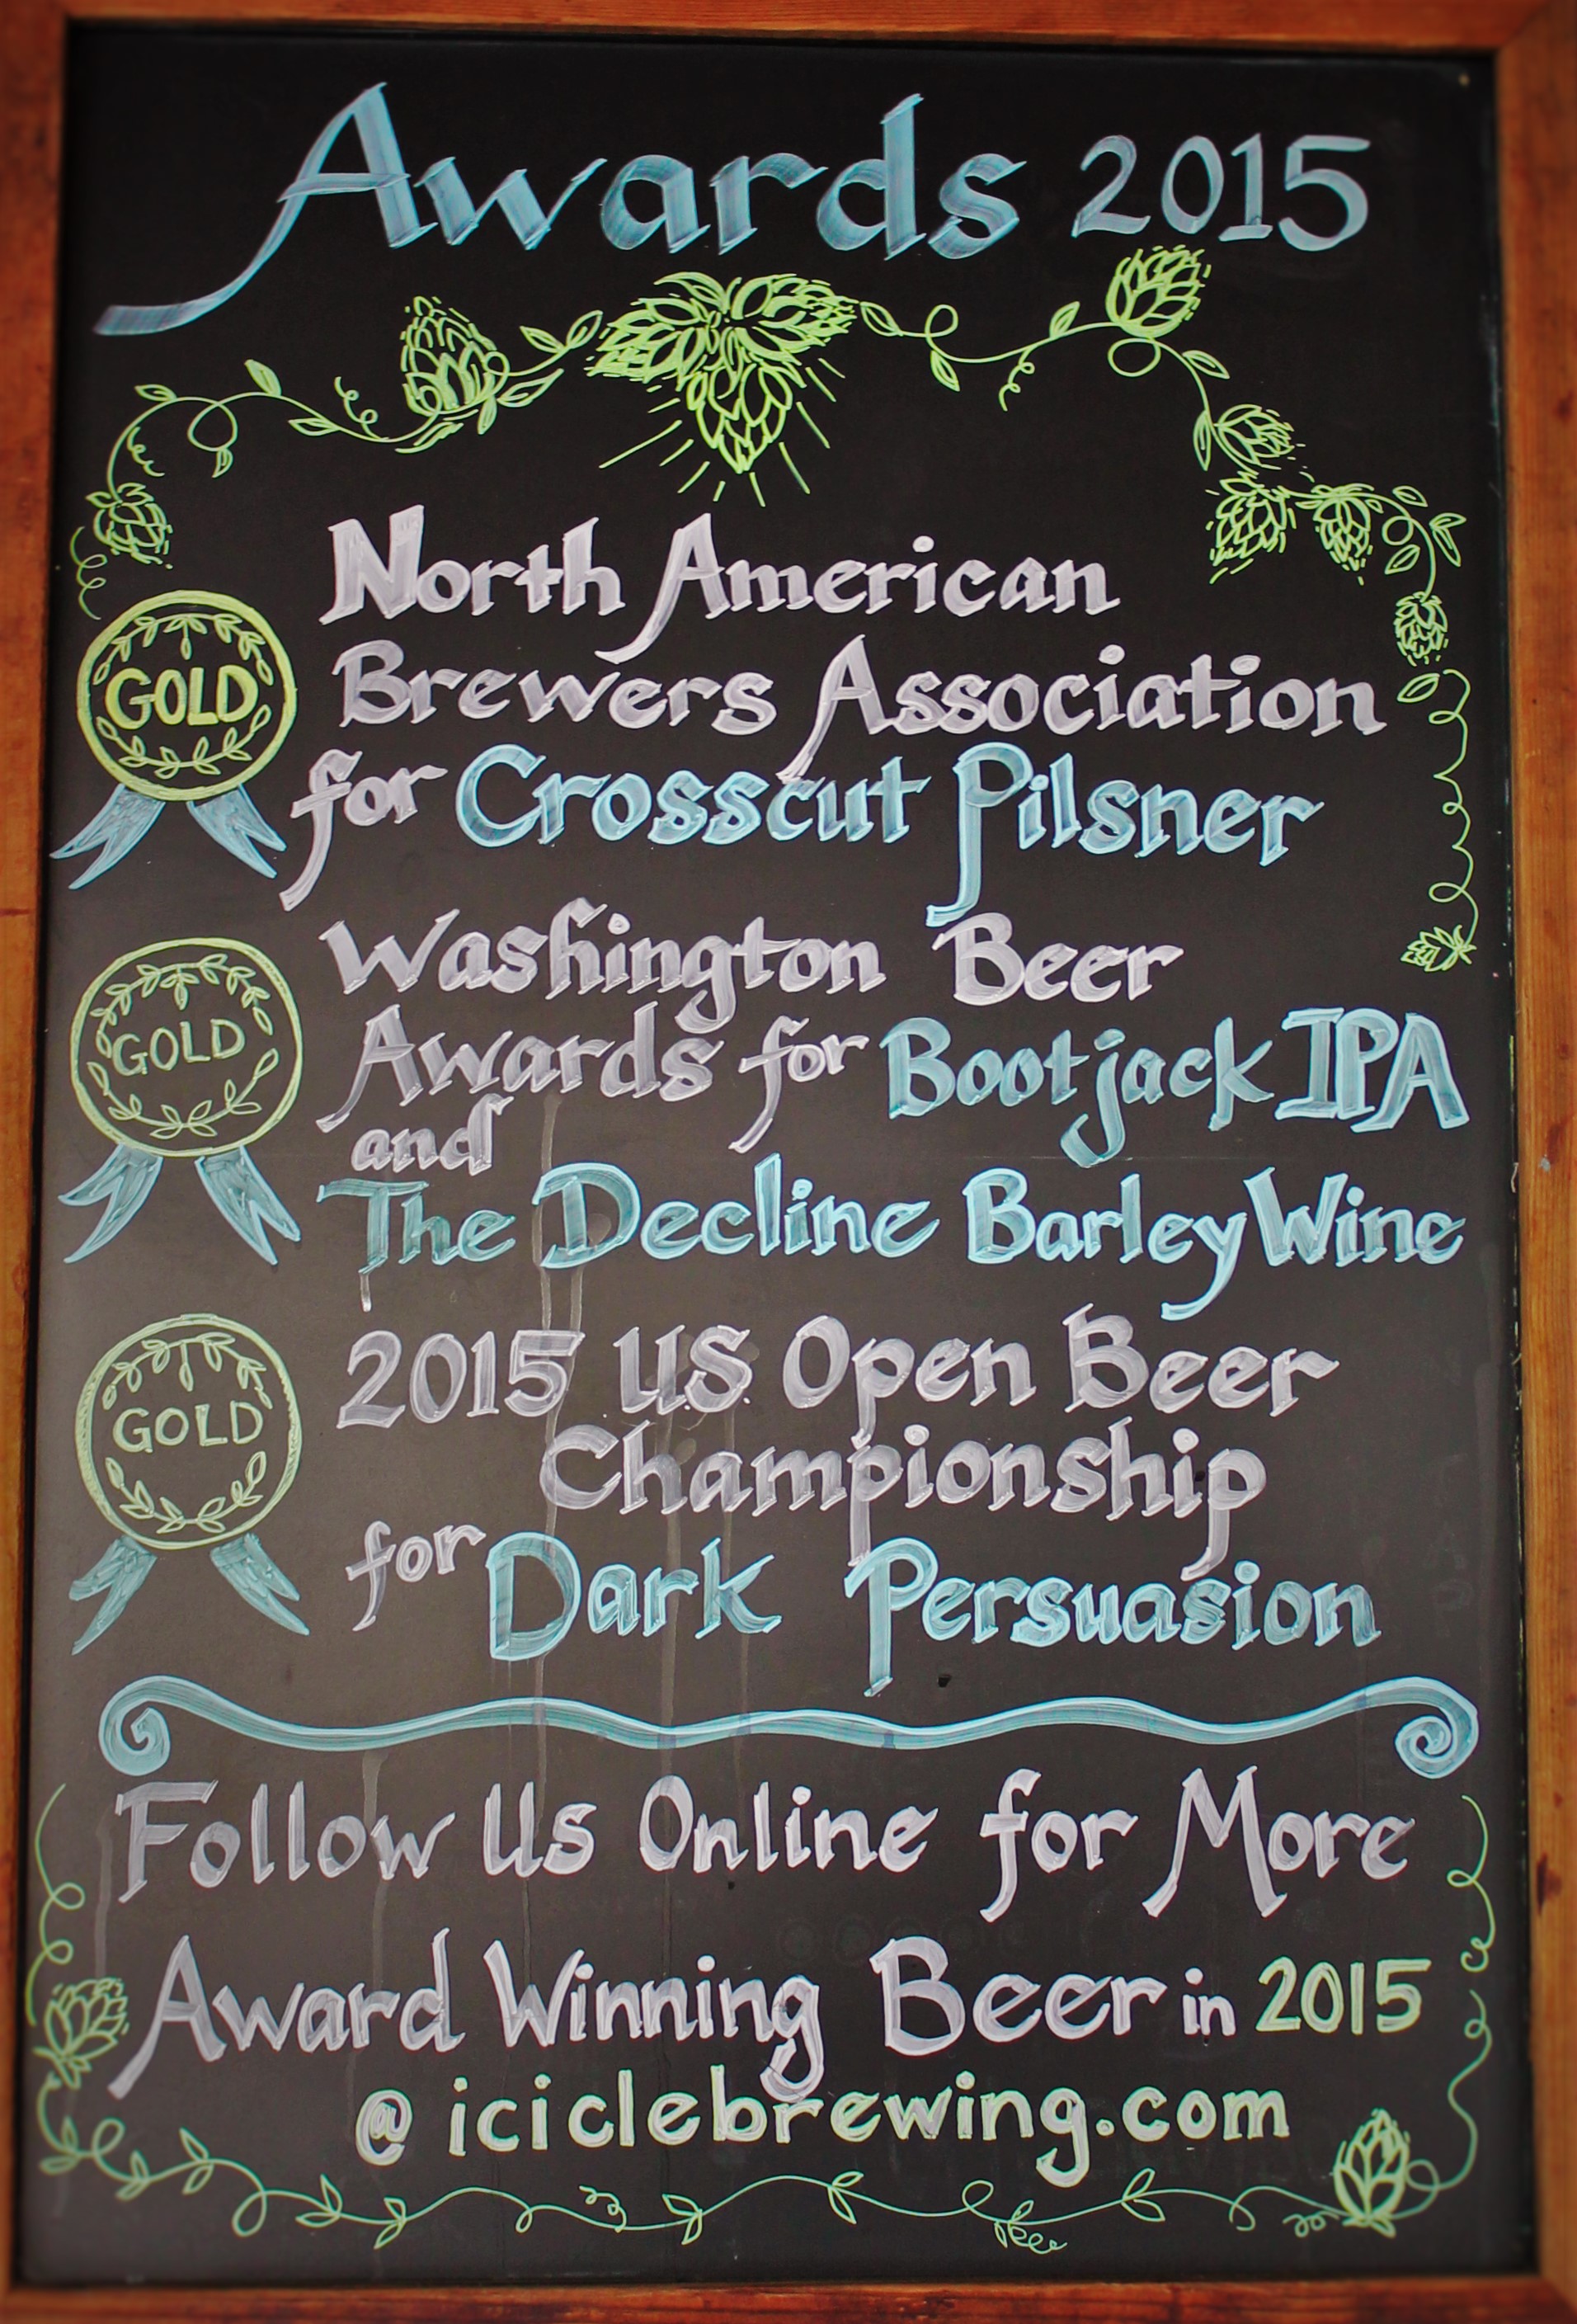 Awards 2015
North American
GOLD
Brewers Association
for Crosscut Pilsner
Washington Beer
GOLD
Awards for Bootjack IPA
and
The Decline Barley Wine
2015 US Open Beer
GOLD
Championship
for Dark Persuasion
Follow Us Online for More
Award Winning Beer in 2015
@ iciclebrewing.com